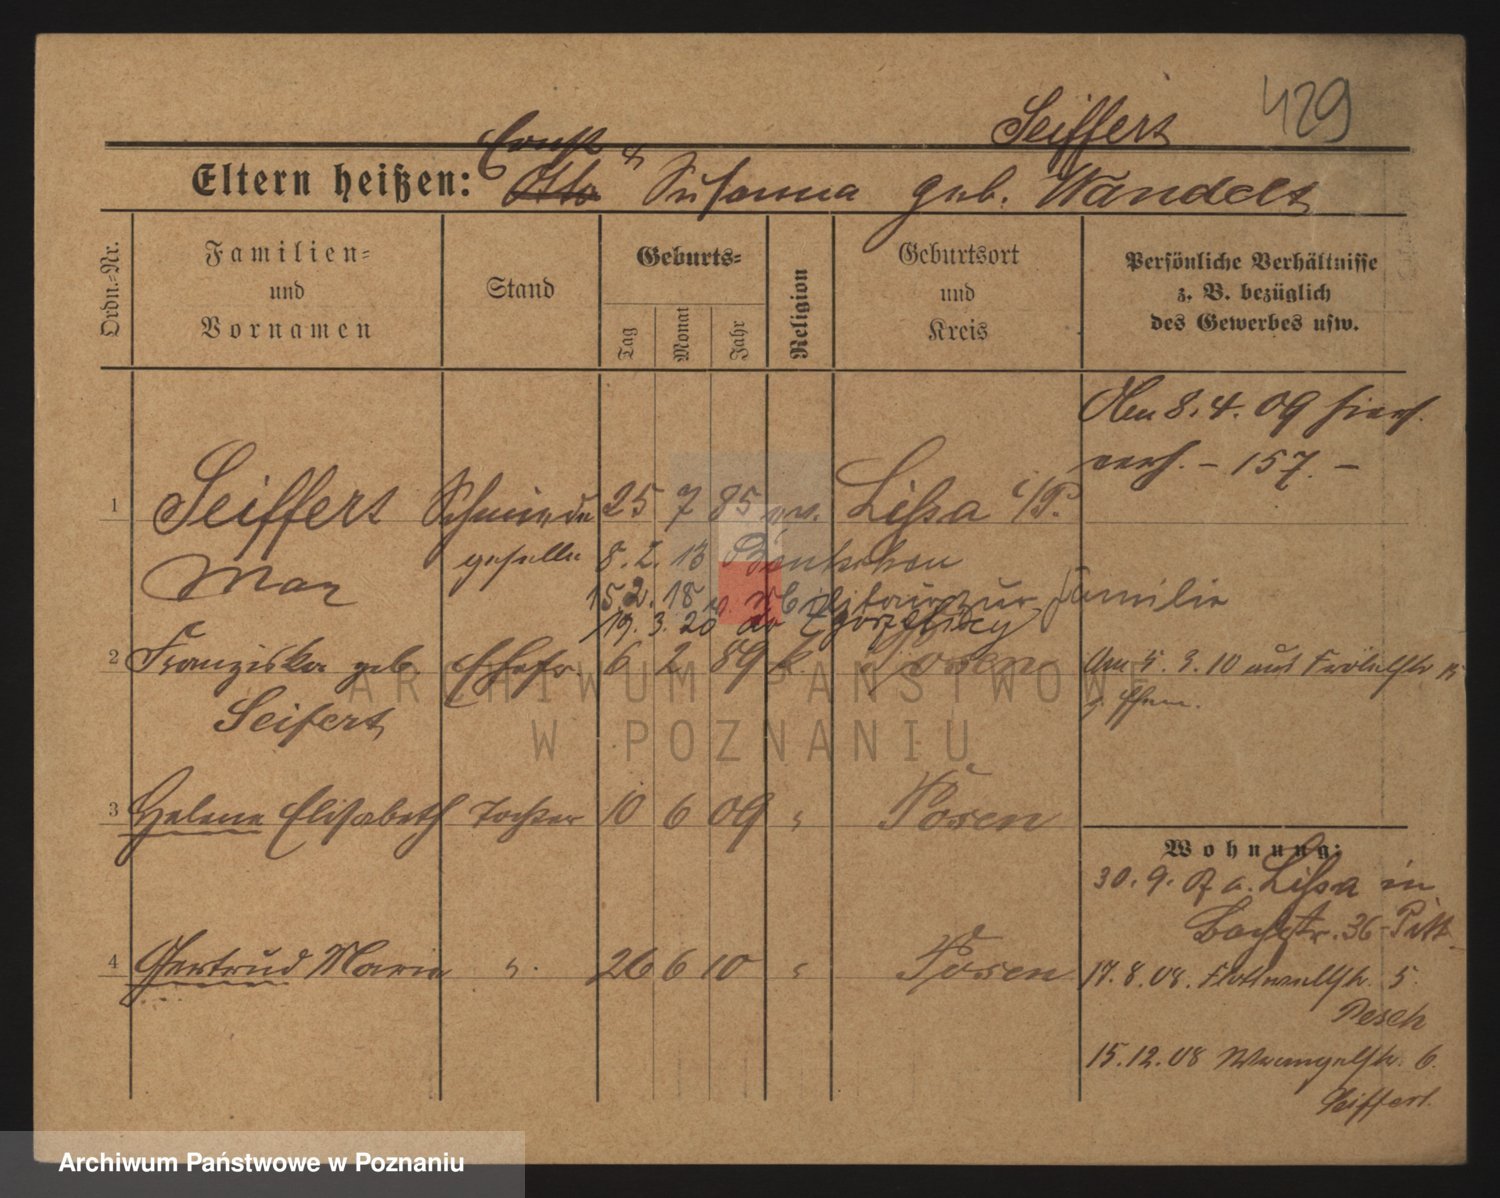 429
Seiffert
Ernst
Eltern heißen: Otto u. Susanna geb. Wandelt
Ordn.-Nr.
Familien- und Vornamen
Stand
Geburts-
Tag
Monat
Jahr
Religion
Geburtsort und Kreis
Persönliche Verhältnisse
z. B. bezüglich
des Gewerbes usw.
8.4.09
verh. – 157. –
1 Seiffert Schmiede 25 7 85 ev. Lissa i/P.
Max geselle 8.2.13 Bentschen
15.2.18 zur Familie
19.3.20
2 Franziska geb. Ehefr. 6 2 89 k. Posen
Seifert
3 Helene Elisabeth Tochter 10 6 09 " Posen
4 Gertrud Maria " 26 6 10 " Posen
Wohnung:
30.9.07 a. Lissa in
36
17.8.08. Flottwellstr. 5.
Pesch
15.12.08 Wrangelstr. 6.
Seiffert.
ARCHIWUM PAŃSTWOWE
W POZNANIU
Archiwum Państwowe w Poznaniu